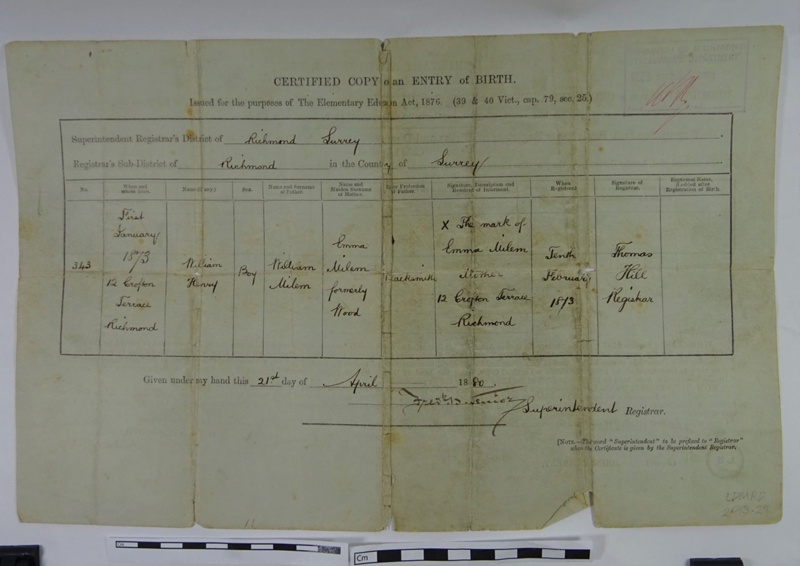 CERTIFIED COPY o an ENTRY of BIRTH.
Issued for the purposes of The Elementary Edu on Act, 1876. (39 & 40 Vict., cap. 79, sec. 25.)
Superintendent Registrar's District of Richmond Surrey
Registrar's Sub-District of Richmond in the County of Surrey
No. When and where Born. Name (if any.) Sex. Name and Surname of Father. Name and Maiden Surname of Mother. Profession of Father. Signature, Description and Residence of Informant. When Registered. Signature of Registrar. Baptismal Name, if added after Registration of Birth.
343
First
January
1873
12 Crofton
Terrace
Richmond
William
Henry
Boy
William
Milem
Emma
Milem
formerly
Wood
lacksmith
X The mark of
Emma Milem
Mother
12 Crofton Terrace
Richmond
Tenth
February
1873
Thomas
Hill
Registrar
Given under my hand this 21st day of April 1880
Superintendent Registrar.
[NOTE.—The word "Superintendent" to be prefixed to "Registrar"
when the Certificate is given by the Superintendent Registrar.
LDMRD
Cm
Cm